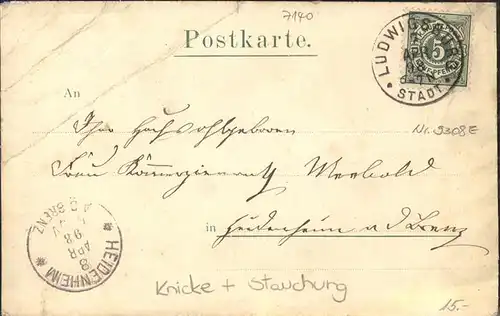 7140
Postkarte.
LUDWIGSBURG
STADT
5
An
Ihre Hochwohlgeboren
Nr. 9308 E
Frau Kommerzienrath Meebold
in Heidenheim a d Brenz
HEIDENHEIM
A.D.BRENZ
8
APR
98
Knicke + Stauchung
15.-